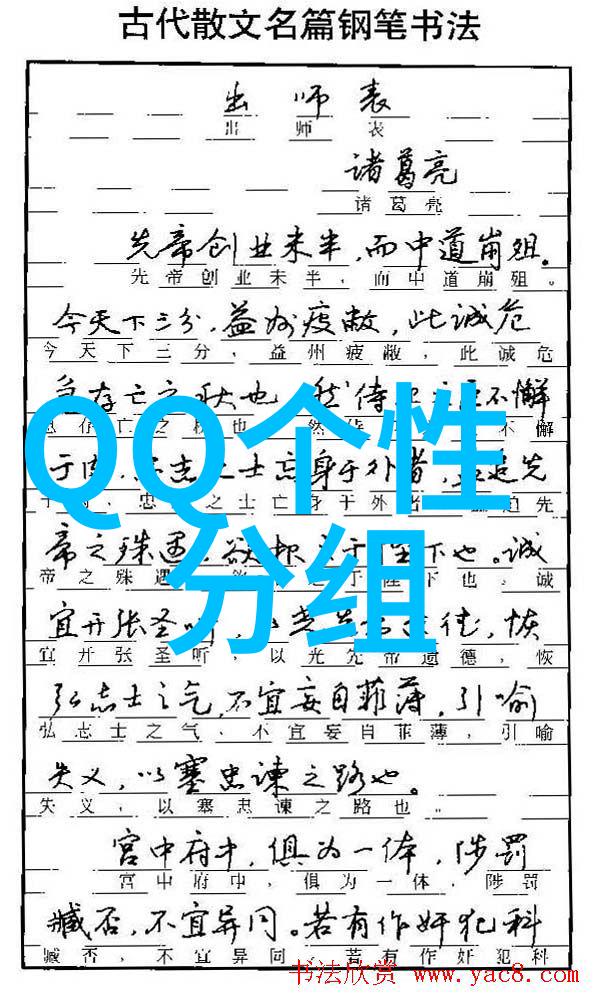 古代散文名篇钢笔书法
出师表
出师表
诸葛亮
诸葛亮
先帝创业未半,而中道崩殂。
先帝创业未半,而中道崩殂。
今天下三分,益州疲敝,此诚危
今天下三分,益州疲敝,此诚危
急存亡之秋也 然侍 不懈
急存亡之秋也 然侍 不懈
QQ个性
于内, 忠志之士忘身于外者, 追先
于内, 忠 之士亡身于外 追先
帝之殊遇,欲报 于陛下也。诚
帝之殊遇, 于陛下也。诚
分组
宜开张圣听, 以光先帝遗德,恢
宜开张圣听,以光先帝遗德,恢
弘志士之气,不宜妄自菲薄,引喻
弘志士之气、不宜妄自菲薄,引喻
失义,以塞忠谏之路也。
失义,以塞忠谏之路也。
宫中府中,俱为一体,陟罚
宫中府中,俱为一体,陟罚
臧否,不宜异同。若有作奸犯科
臧否,不宜异同 若有作奸犯科
书法欣赏 www.yac8.com